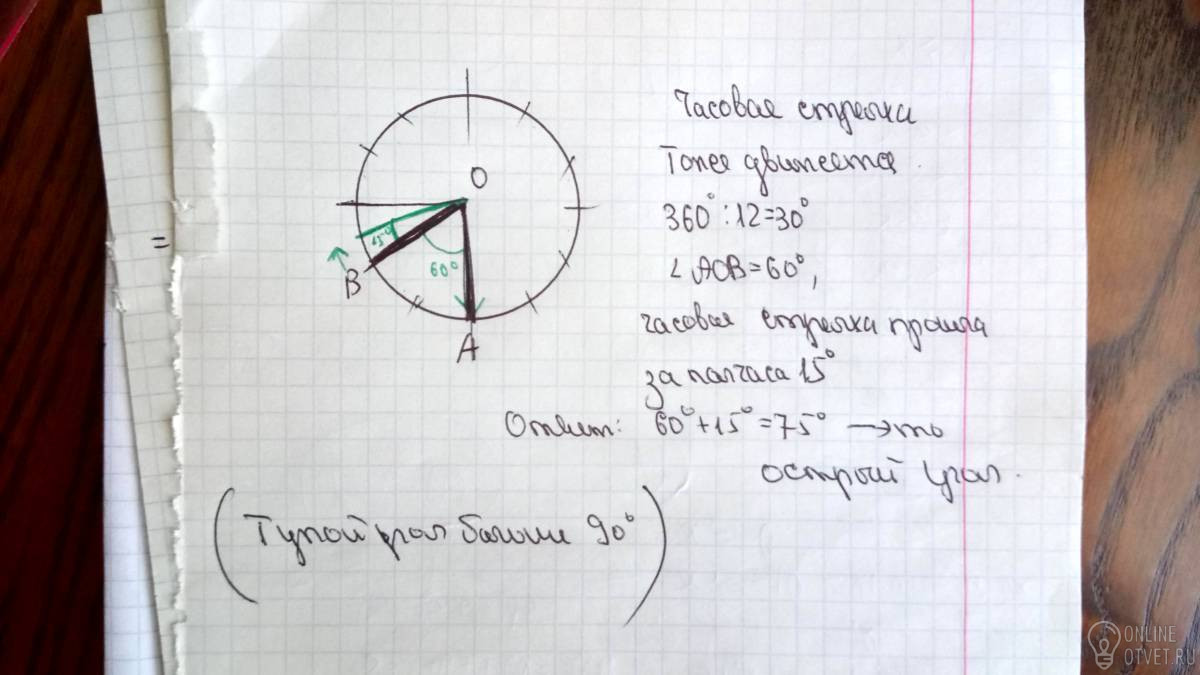 Часовая стрелка
Тоже движется.
360° : 12 = 30°
∠ AOB = 60°,
часовая стрелка прошла
за полчаса 15°
Ответ: 60° + 15° = 75° → это
острый угол.
(Тупой угол больше 90°)
O
15°
60°
B
A
=
ONLINE
OTVET.RU